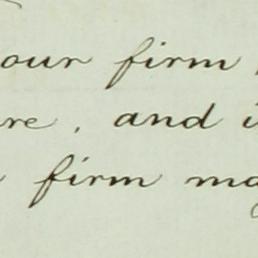 our firm
re, and i
firm ma